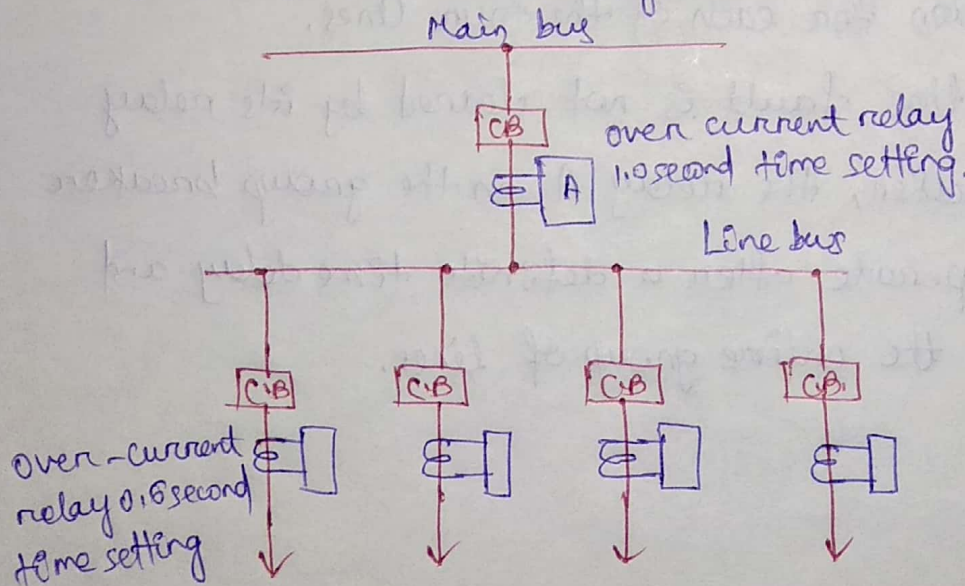 Main bus
CB
over current relay
1.0 second time setting.
A
Line bus
C.B
C.B
C.B
C.B.
over-current
relay 0.6 second
time setting